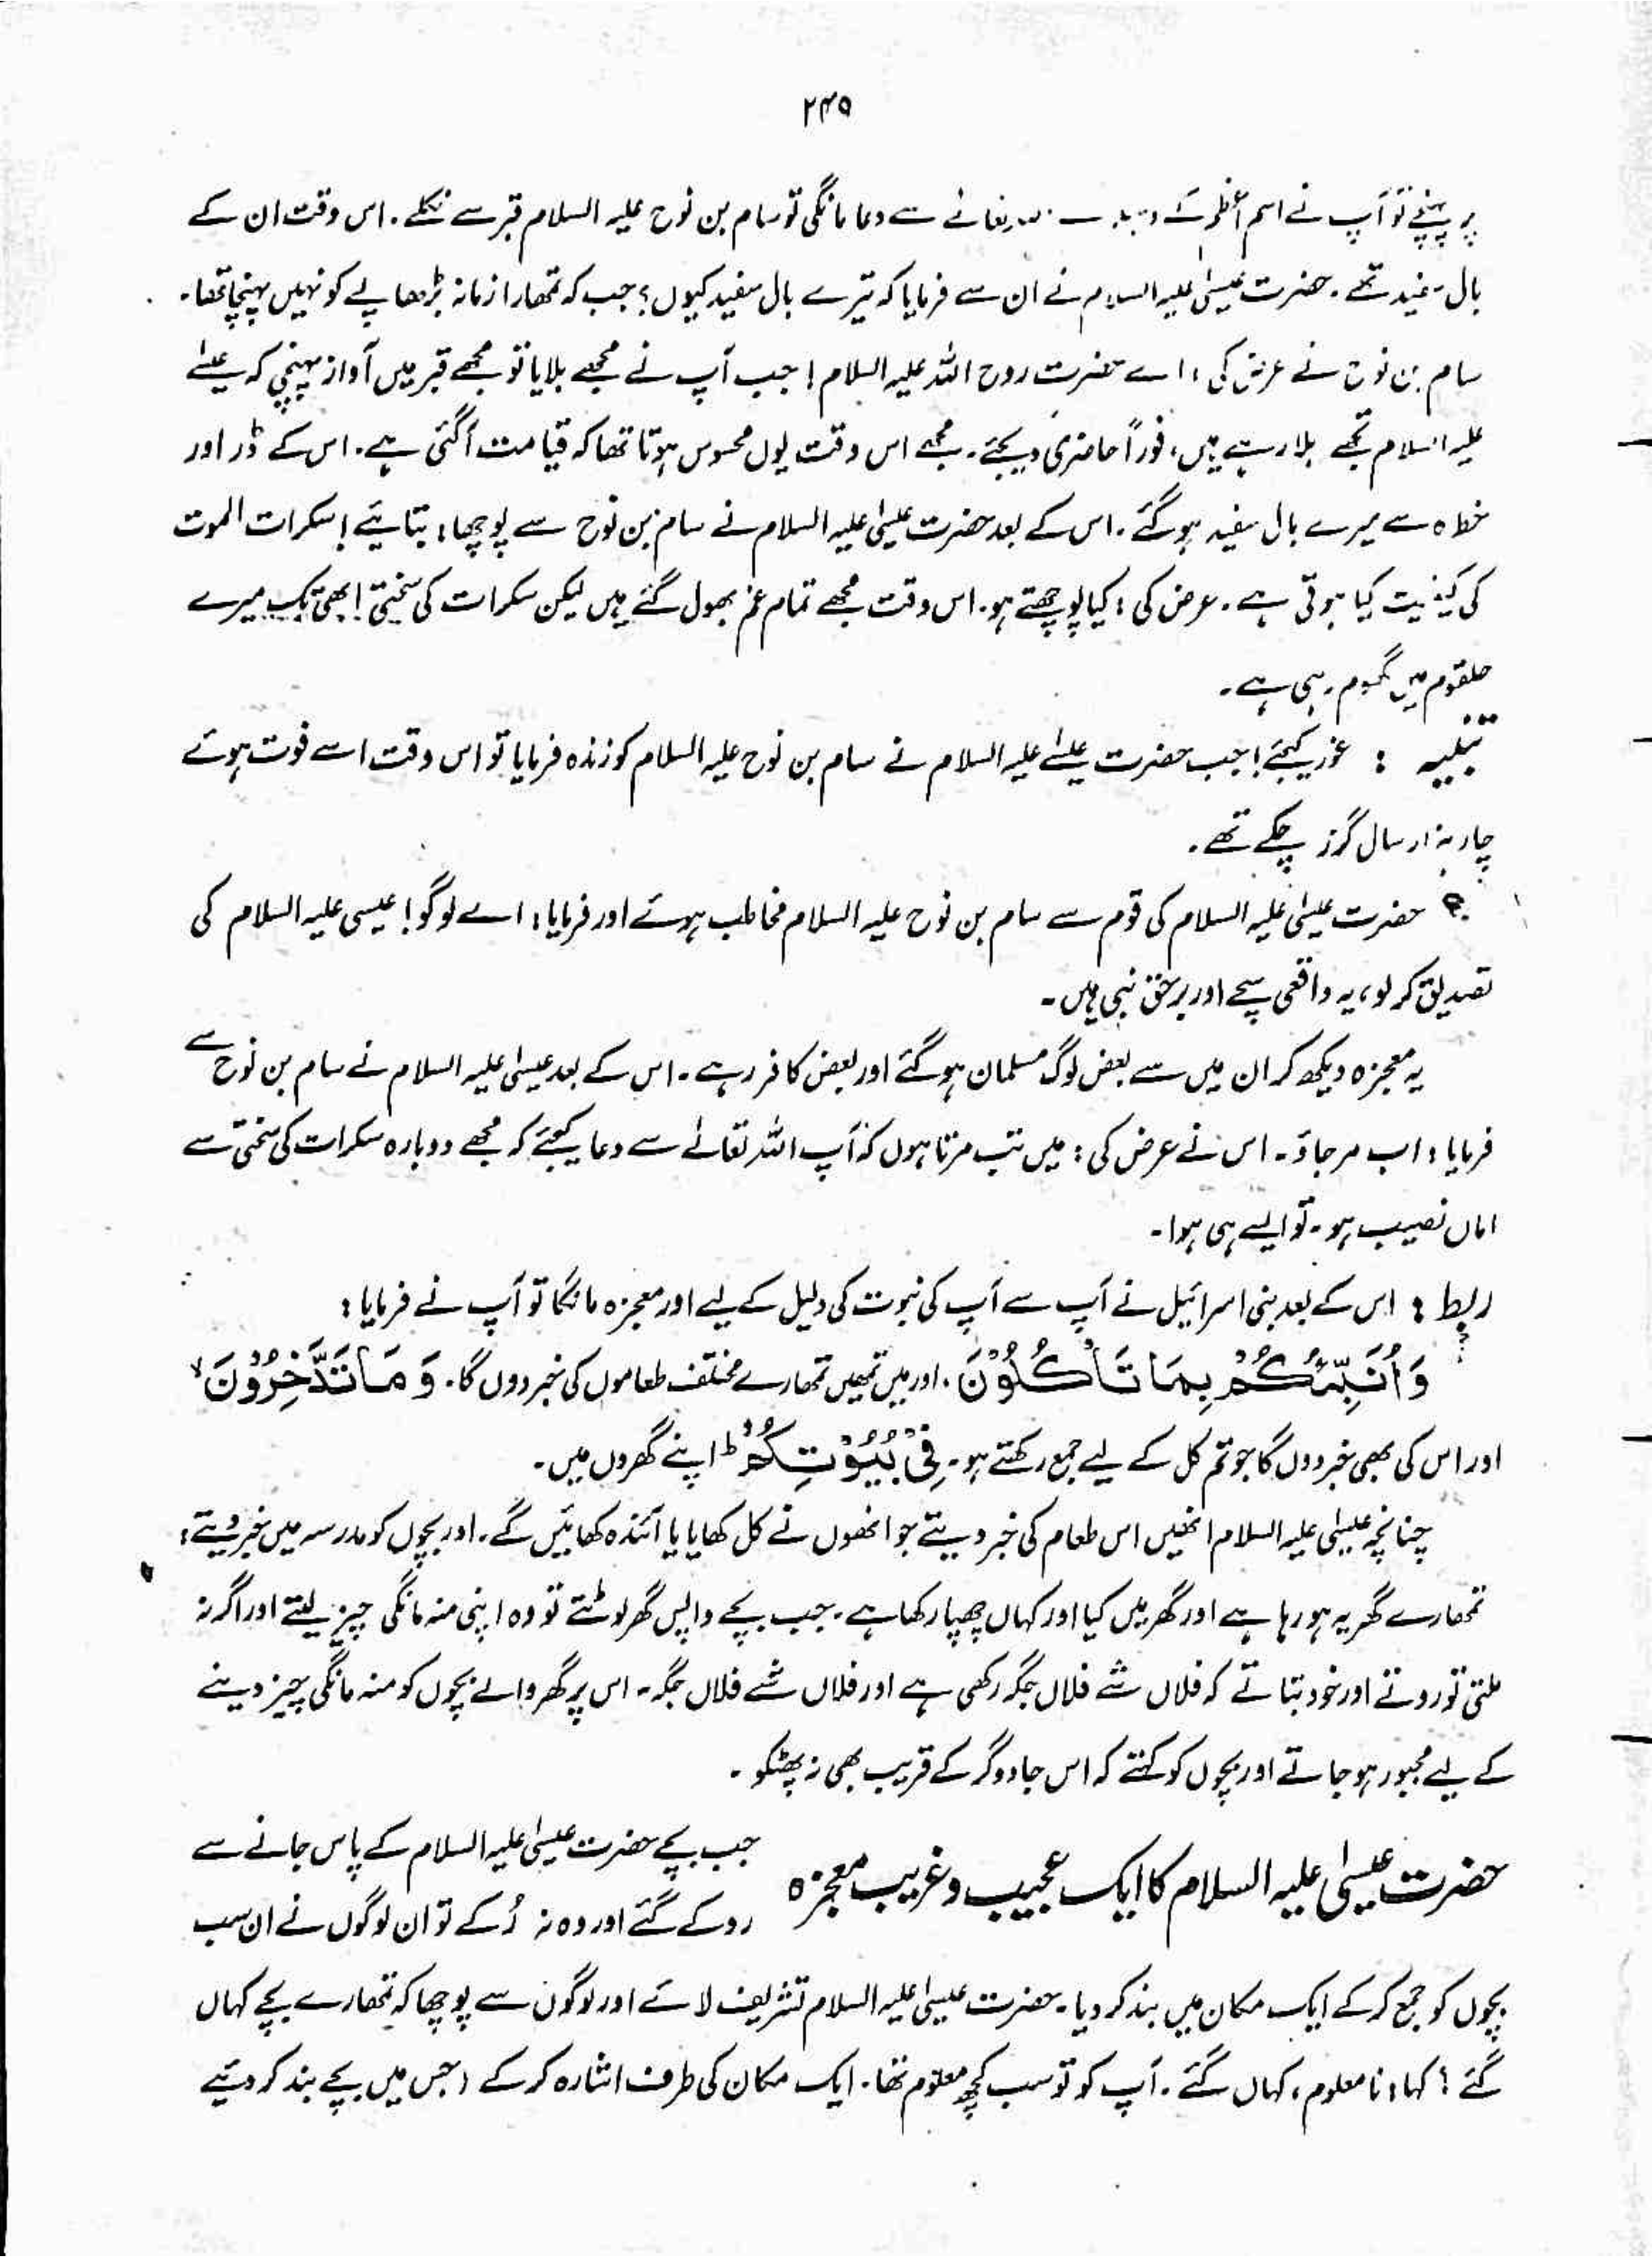 ۲۴۵
پر پہنچے تو آپ نے اسم اعظم کے وسیلہ سے اللہ تعالٰے سے دعا مانگی تو سام بن نوح علیہ السلام قبر سے نکلے۔ اس وقت ان کے
بال سفید تھے۔ حضرت عیسیٰ علیہ السلام نے ان سے فرمایا کہ تیرے بال سفید کیوں؟ جب کہ تمھارا زمانہ بڑھاپے کو نہیں پہنچا تھا۔
سام بن نوح نے عرض کی: اے حضرت روح اللہ علیہ السلام! جب آپ نے مجھے بلایا تو مجھے قبر میں آواز پہنچی کہ عیسٰے
علیہ السلام تجھے بلا رہے ہیں، فوراً حاضری دیجئے۔ مجھے اس وقت یوں محسوس ہوتا تھا کہ قیامت آگئی ہے۔ اس کے ڈر اور
خطرہ سے میرے بال سفید ہوگئے۔ اس کے بعد حضرت عیسیٰ علیہ السلام نے سام بن نوح سے پوچھا: بتائیے! سکرات الموت
کی کیفیت کیا ہوتی ہے۔ عرض کی: کیا پوچھتے ہو۔ اس وقت مجھے تمام غم بھول گئے ہیں لیکن سکرات کی سختی ابھی تک میرے
حلقوم میں گھوم رہی ہے۔
تنبیہ : غور کیجئے! جب حضرت عیسٰے علیہ السلام نے سام بن نوح علیہ السلام کو زندہ فرمایا تو اس وقت اسے فوت ہوئے
چار ہزار سال گزر چکے تھے۔
حضرت عیسیٰ علیہ السلام کی قوم سے سام بن نوح علیہ السلام مخاطب ہوئے اور فرمایا: اے لوگو! عیسی علیہ السلام کی
تصدیق کرلو، یہ واقعی سچے اور برحق نبی ہیں۔
یہ معجزہ دیکھ کر ان میں سے بعض لوگ مسلمان ہوگئے اور بعض کافر رہے۔ اس کے بعد عیسیٰ علیہ السلام نے سام بن نوح سے
فرمایا: اب مرجاؤ۔ اس نے عرض کی: میں تب مرتا ہوں کہ آپ اللہ تعالٰے سے دعا کیجئے کہ مجھے دوبارہ سکرات کی سختی سے
اماں نصیب ہو۔ تو ایسے ہی ہوا۔
ربط : اس کے بعد بنی اسرائیل نے آپ سے آپ کی نبوت کی دلیل کے لیے اور معجزہ مانگا تو آپ نے فرمایا :
وَاُنَبِّئُكُمْ بِمَا تَاْكُلُوْنَ، اور میں تمھیں تمھارے مختلف طعاموں کی خبر دوں گا۔ وَمَا تَدَّخِرُوْنَ ۙ
اور اس کی بھی خبر دوں گا جو تم کل کے لیے جمع رکھتے ہو۔ فِیْ بُیُوْتِکُمْ ؕ اپنے گھروں میں۔
چنانچہ عیسیٰ علیہ السلام انھیں اس طعام کی خبر دیتے جو انھوں نے کل کھایا یا آئندہ کھائیں گے۔ اور بچوں کو مدرسہ میں خبر دیتے:
تمھارے گھر یہ ہورہا ہے اور گھر میں کیا اور کہاں چھپا رکھا ہے۔ جب بچے واپس گھر لوٹتے تو وہ اپنی منہ مانگی چیز لیتے اور اگر نہ
ملتی تو روتے اور خود بتاتے کہ فلاں شے فلاں جگہ رکھی ہے اور فلاں شے فلاں جگہ۔ اس پر گھر والے بچوں کو منہ مانگی چیز دینے
کے لیے مجبور ہوجاتے اور بچوں کو کہتے کہ اس جادوگر کے قریب بھی نہ پھٹکو۔
حضرت عیسیٰ علیہ السلام کا ایک عجیب و غریب معجزہ
جب بچے حضرت عیسیٰ علیہ السلام کے پاس جانے سے
روکے گئے اور وہ نہ رُکے تو ان لوگوں نے ان سب
بچوں کو جمع کرکے ایک مکان میں بند کر دیا۔ حضرت عیسیٰ علیہ السلام تشریف لائے اور لوگوں سے پوچھا کہ تمھارے بچے کہاں
گئے؟ کہا: نا معلوم، کہاں گئے۔ آپ کو تو سب کچھ معلوم تھا۔ ایک مکان کی طرف اشارہ کرکے (جس میں بچے بند کر دئیے